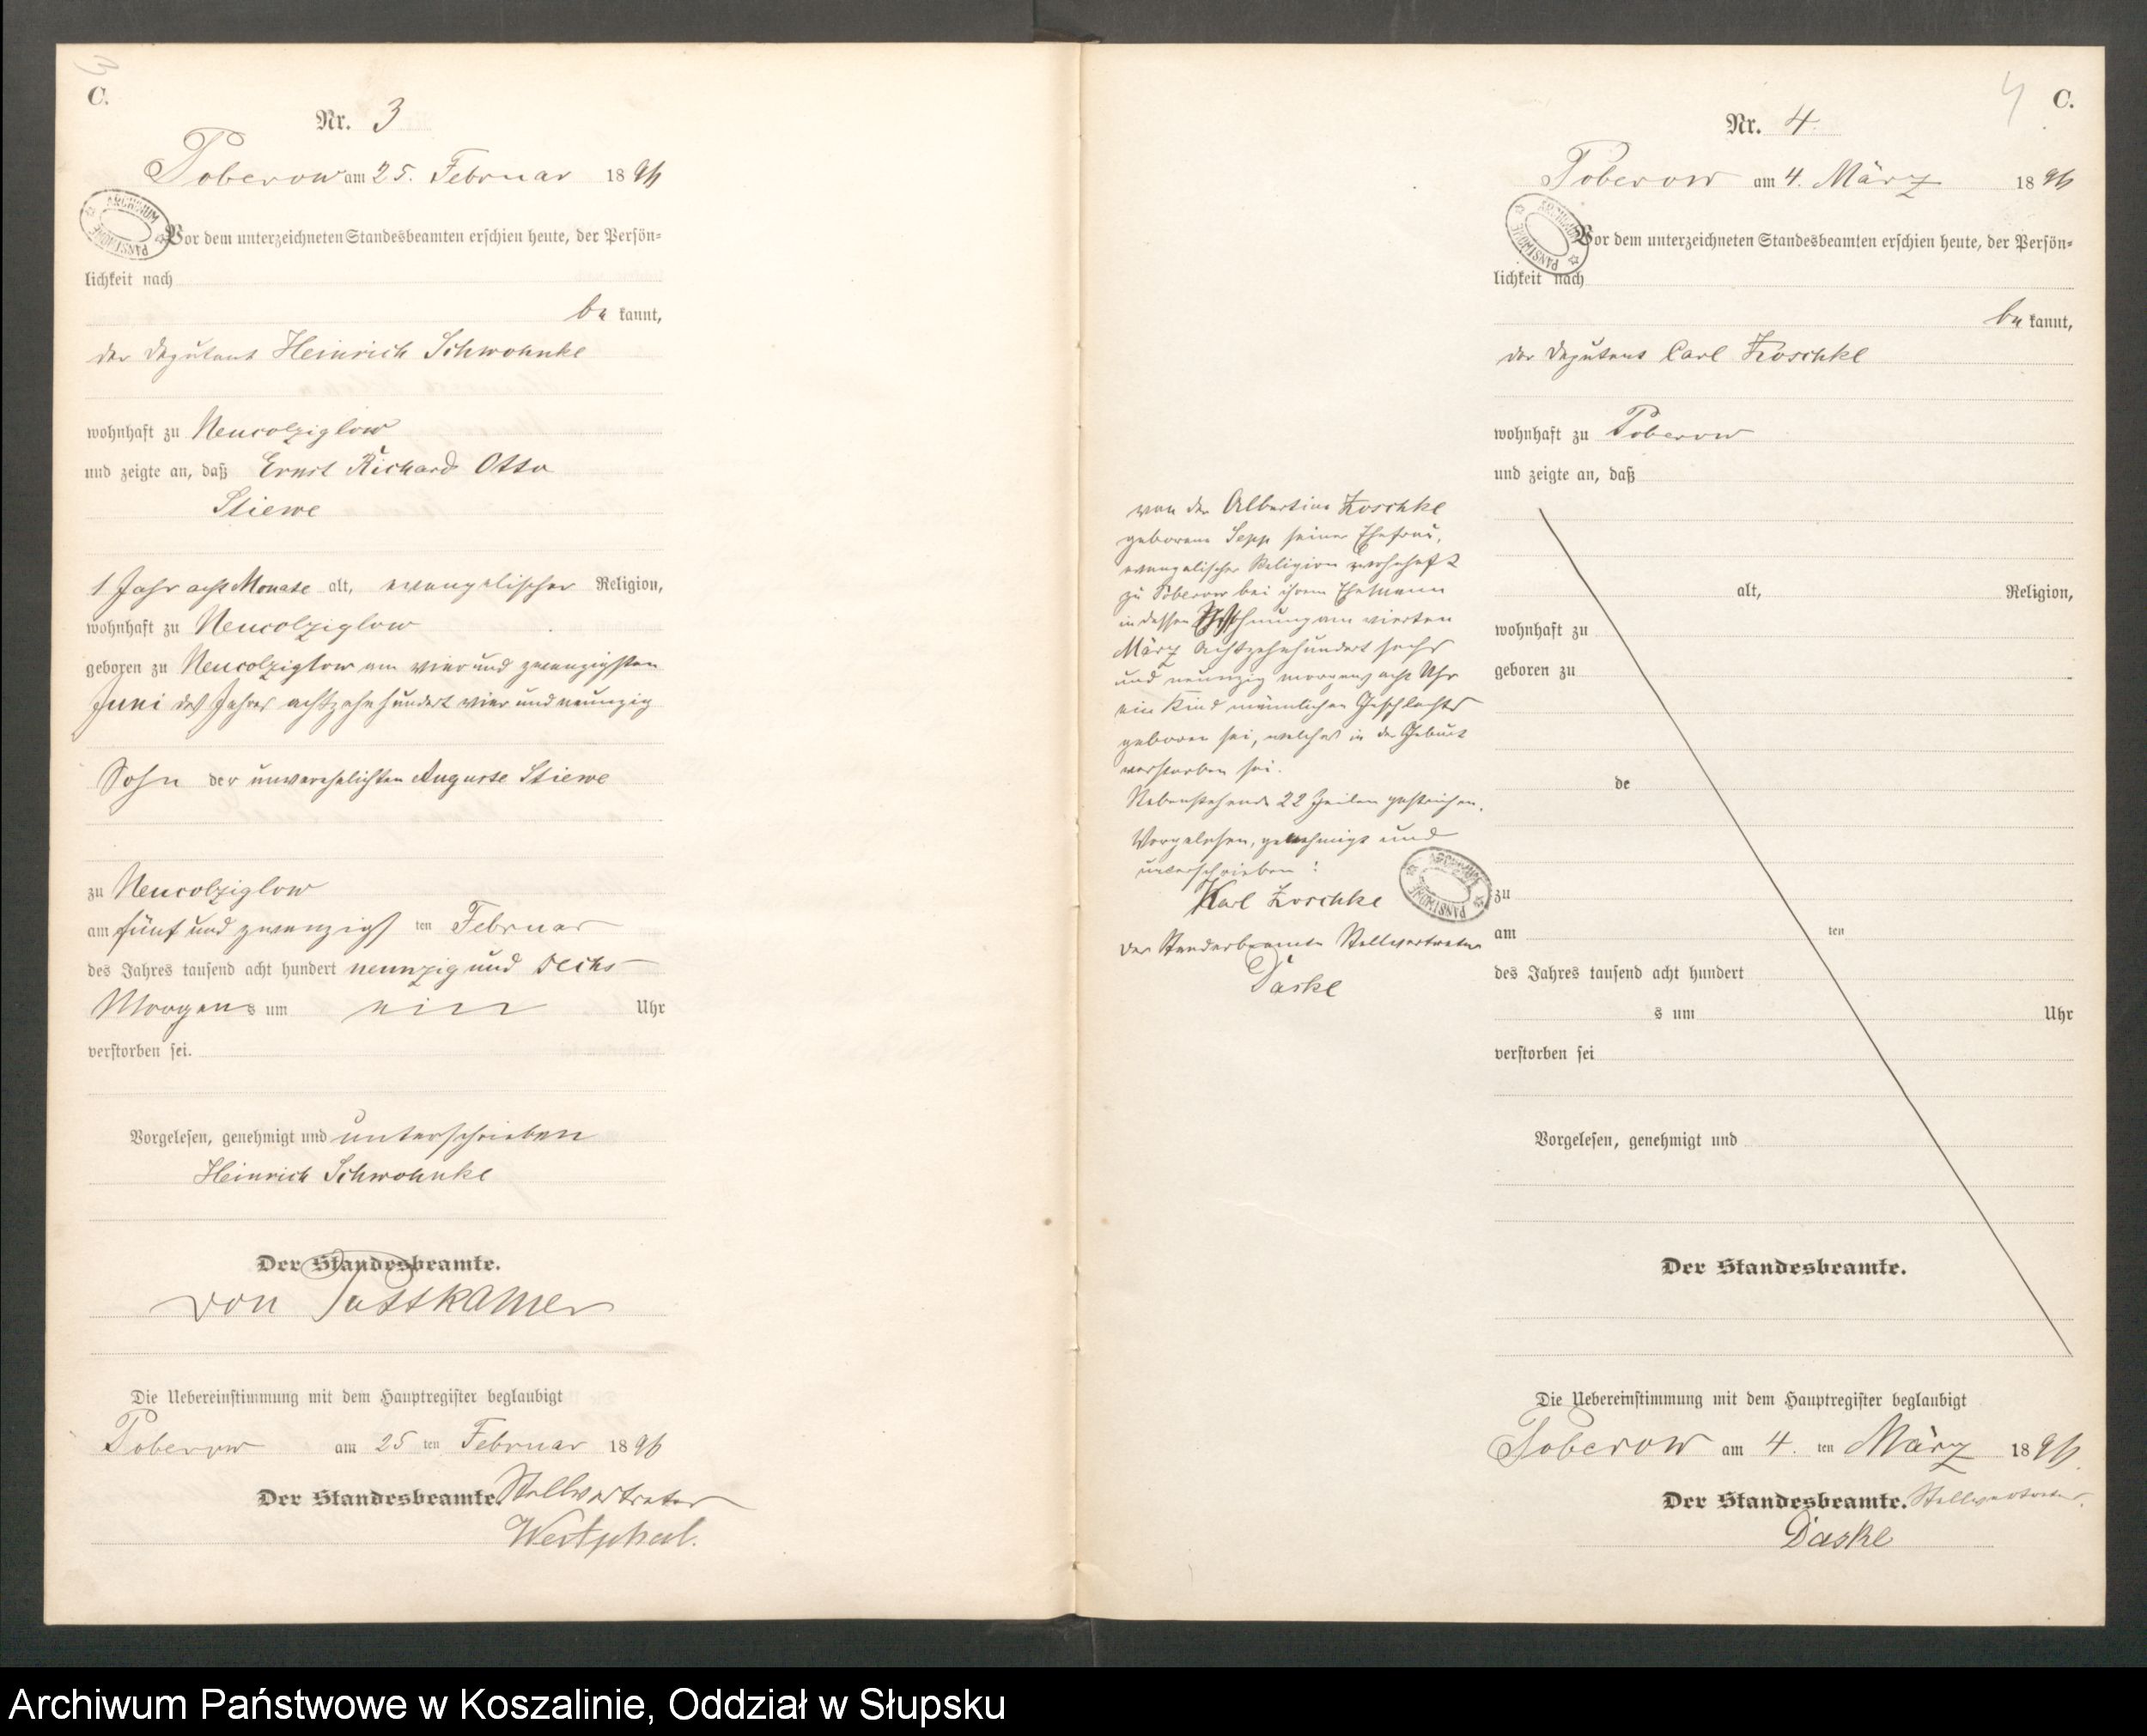 C.
Nr. 3
Poberow am 25. Februar 1896
Vor dem unterzeichneten Standesbeamten erschien heute, der Persön=
lichkeit nach
be kannt,
der Deputant Heinrich Schwohnke
wohnhaft zu Neucolziglow
und zeigte an, daß Ernst Richard Otto
Stiewe
1 Jahr acht Monate alt, evangelischer Religion,
wohnhaft zu Neucolziglow
geboren zu Neucolziglow am vier und zwanzigsten
Juni des Jahres achtzehnhundert vier und neunzig
Sohn der unverehelichten Auguste Stiewe
zu Neucolziglow
am fünf und zwanzigs ten Februar
des Jahres tausend acht hundert neunzig und sechs
Morgens um ein Uhr
verstorben sei.
Vorgelesen, genehmigt und unterschrieben
Heinrich Schwohnke
Der Standesbeamte.
von Puttkamer
Die Uebereinstimmung mit dem Hauptregister beglaubigt
Poberow am 25 ten Februar 1896
Der Standesbeamte. Stellvertreter
Westphal.
4 C.
Nr. 4.
Poberow am 4. März 1896
Vor dem unterzeichneten Standesbeamten erschien heute, der Persön=
lichkeit nach
be kannt,
der Deputant Carl Zoschke
wohnhaft zu Poberow
und zeigte an, daß
alt, Religion,
wohnhaft zu
geboren zu
de
zu
am ten
des Jahres tausend acht hundert
s um Uhr
verstorben sei
Vorgelesen, genehmigt und
Der Standesbeamte.
von der Albertine Zoschke
geborene Sepp seiner Ehefrau,
evangelischer Religion wohnhaft
zu Poberow bei ihrem Ehemann
in dessen Wohnung am vierten
März Achtzehnhundert sechs
und neunzig morgens acht Uhr
ein Kind männlichen Geschlechts
geboren sei, welches in der Geburt
verstorben sei.
Nebenstehende 22 Zeilen gestrichen.
Vorgelesen, genehmigt und
unterschrieben:
Karl Zoschke
Der Standesbeamte Stellvertreter
Daske
Die Uebereinstimmung mit dem Hauptregister beglaubigt
Poberow am 4. ten März 1896.
Der Standesbeamte. Stellvertreter.
Daske
ARCHIWUM PAŃSTWOWE
ARCHIWUM PAŃSTWOWE
ARCHIWUM PAŃSTWOWE
Archiwum Państwowe w Koszalinie, Oddział w Słupsku